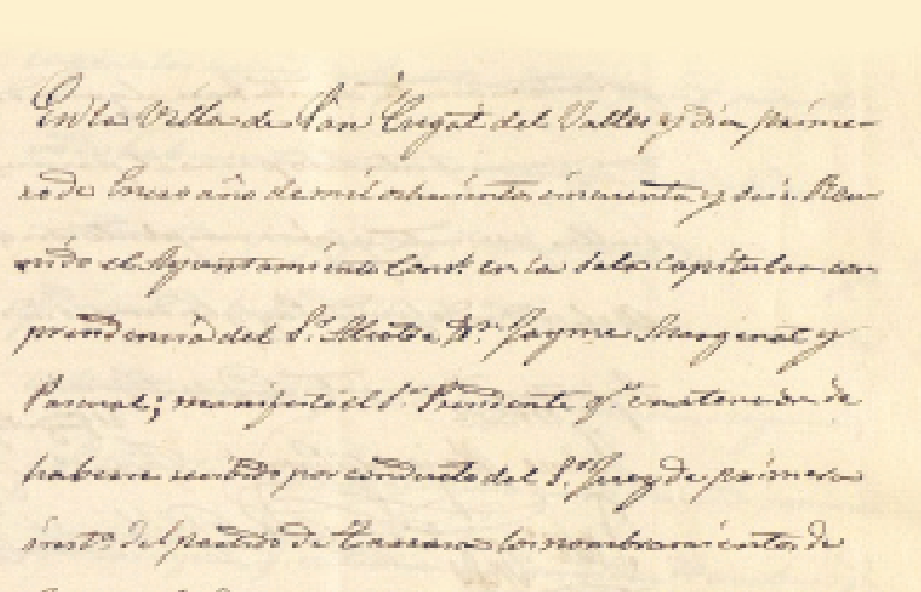 En la Villa de San Cugat del Valles y dia prime-
ro de Enero año de mil ochocientos cincuenta y seis. Reu-
nido el Ayuntamiento Const.l en la Sala Capitular con
presidencia del S.r Alcalde D.n Jayme Marginat y
Pascual; manifestó el S.r Presidente q.e en atencion de
haberse recibido por conducto del S.or Juez de primera
inst.a del partido de Tarrasa los nombramientos de